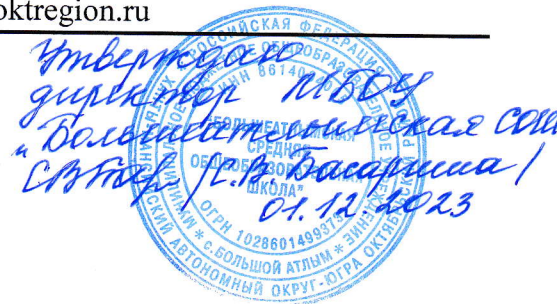 oktregion.ru
Утверждаю
директор МБОУ
"Большеатлымская СОШ
/С.В. Басаргина/
01.12.2023
РОССИЙСКАЯ ФЕДЕРАЦИЯ
ИНН 8614
"БОЛЬШЕАТЛЫМСКАЯ
СРЕДНЯЯ
ОБЩЕОБРАЗОВАТЕЛЬНАЯ
ШКОЛА"
ОГРН 1028601499
* с.БОЛЬШОЙ АТЛЫМ *
АВТОНОМНЫЙ ОКРУГ-ЮГРА